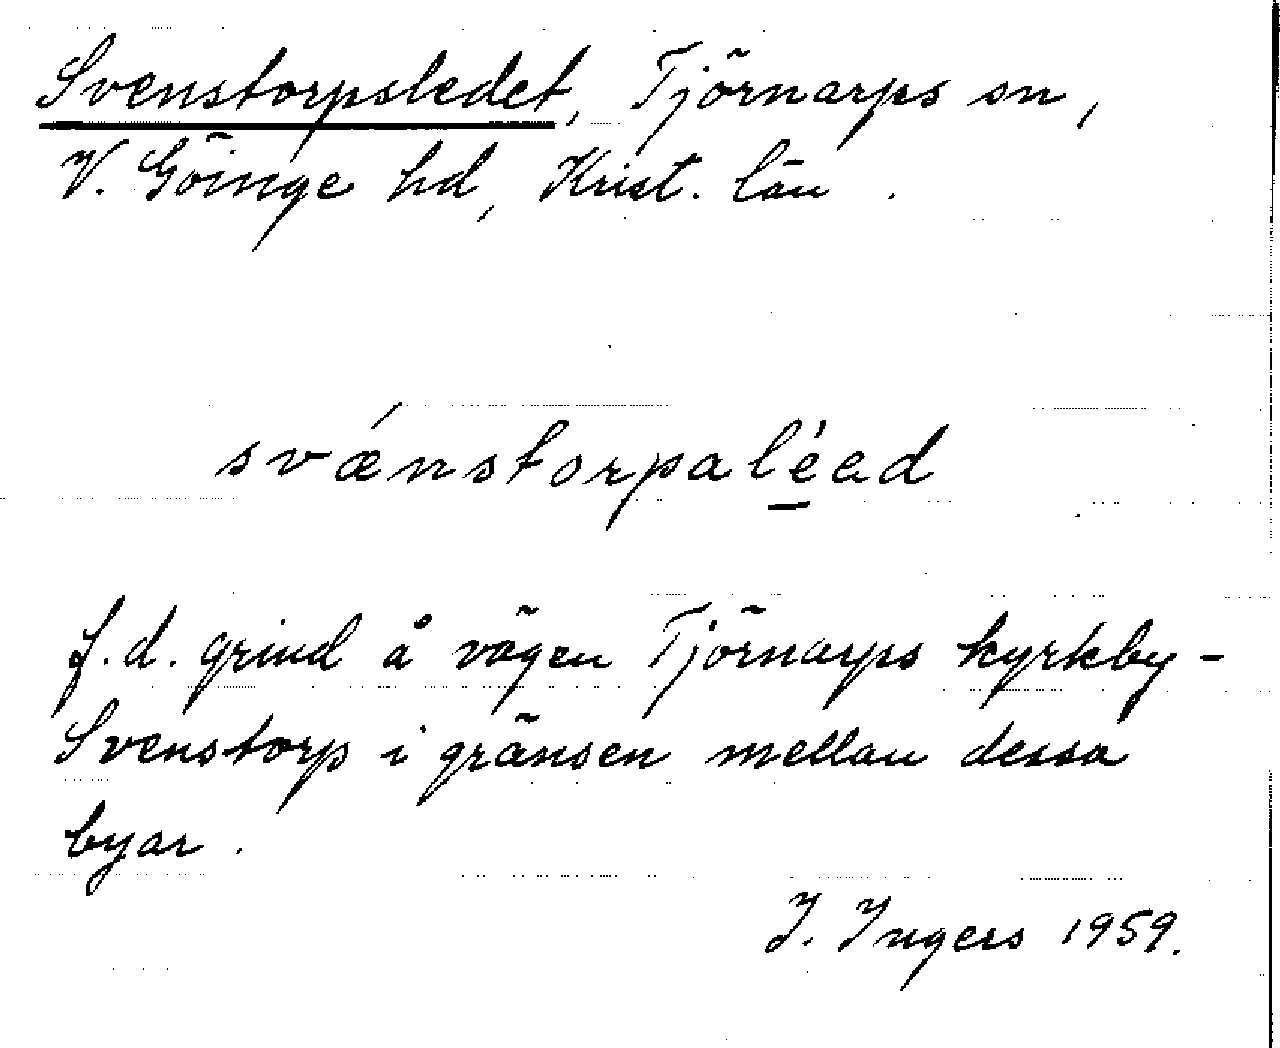 Svenstorpsledet, Tjörnarps sn,
V. Göinge hd, Krist. län.
svǽnstorpalé̱ad
f.d. grind å vägen Tjörnarps kyrkby-
Svenstorp i gränsen mellan dessa
byar.
I. Ingers 1959.